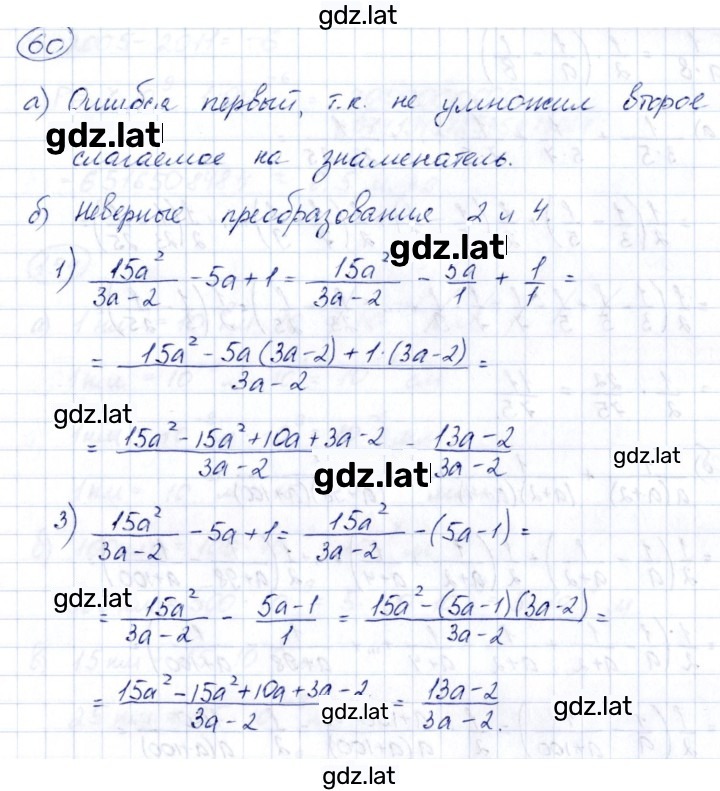 gdz.lat
60
а) Ошибся первый, т.к. не умножил второе
gdz.lat
слагаемое на знаменатель.
б) неверные преобразования 2 и 4.
gdz.lat
1) 15a²/(3a-2) - 5a + 1 = 15a²/(3a-2) - 5a/1 + 1/1 =
= (15a² - 5a(3a-2) + 1·(3a-2))/(3a-2) =
gdz.lat
= (15a² - 15a² + 10a + 3a - 2)/(3a-2) - (13a-2)/(3a-2)
gdz.lat
gdz.lat
3) 15a²/(3a-2) - 5a + 1 = 15a²/(3a-2) - (5a-1) =
gdz.lat
= 15a²/(3a-2) - (5a-1)/1 = (15a² - (5a-1)(3a-2))/(3a-2) =
= (15a² - 15a² + 10a + 3a - 2)/(3a-2) = (13a-2)/(3a-2).
gdz.lat
gdz.lat
gdz.lat